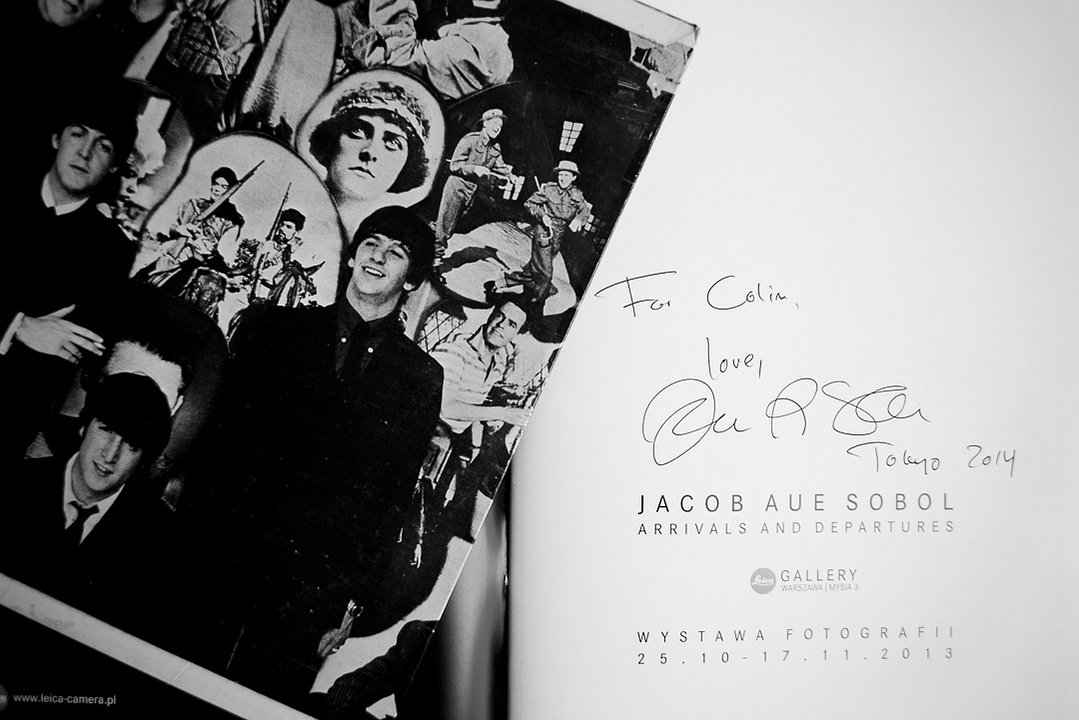 For Colin,
love,
Tokyo 2014
JACOB AUE SOBOL
ARRIVALS AND DEPARTURES
Leica GALLERY
WARSZAWA | MYSIA 3
WYSTAWA FOTOGRAFII
25.10-17.11.2013
www.leica-camera.pl